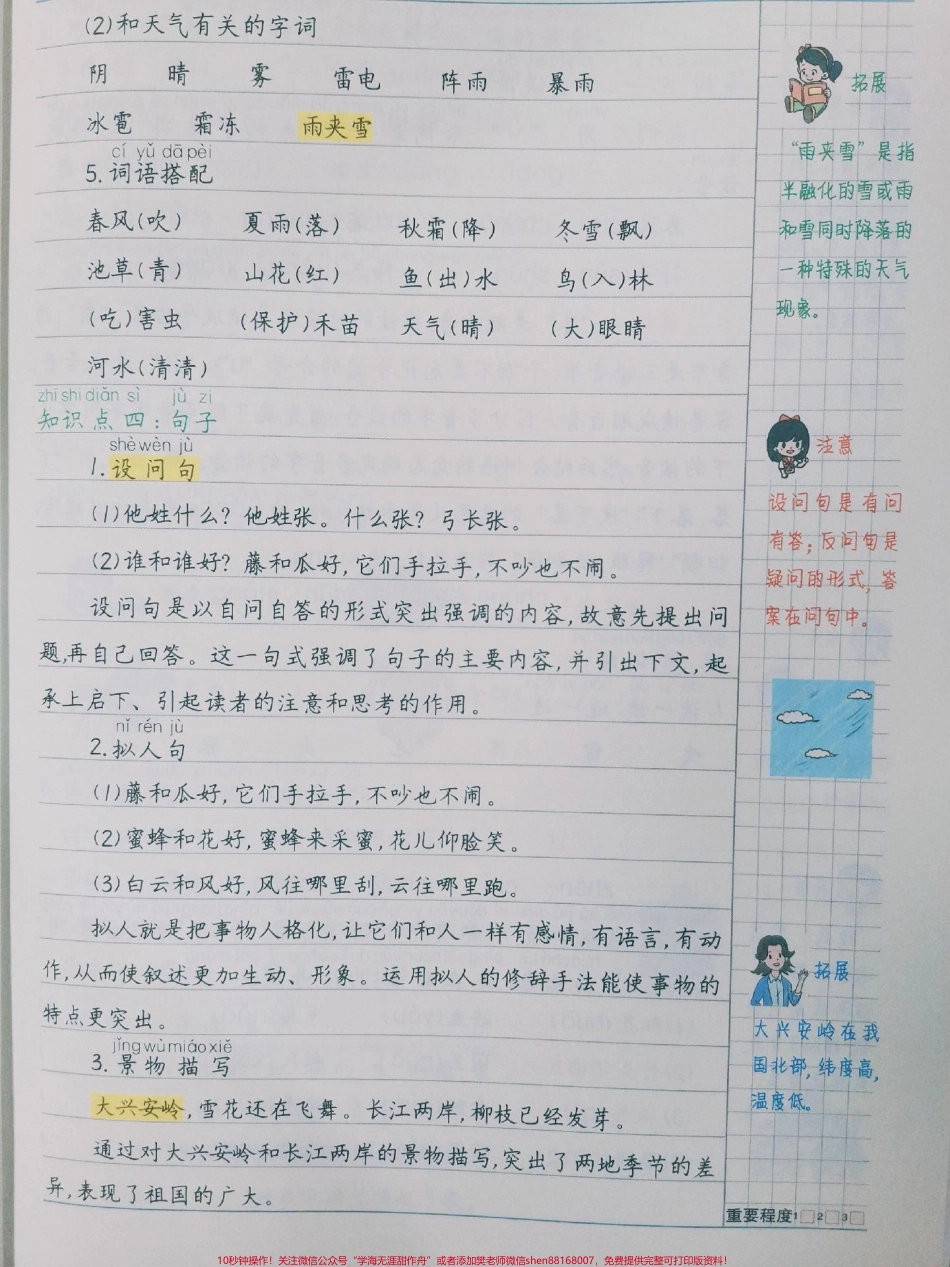 (2)和天气有关的字词
阴 晴 雾 雷电 阵雨 暴雨
冰雹 霜冻 雨夹雪
cí yǔ dā pèi
5.词语搭配
春风(吹) 夏雨(落) 秋霜(降) 冬雪(飘)
池草(青) 山花(红) 鱼(出)水 鸟(入)林
(吃)害虫 (保护)禾苗 天气(晴) (大)眼睛
河水(清清)
zhī shi diǎn sì jù zi
知识点四:句子
shè wèn jù
1.设问句
(1)他姓什么?他姓张。什么张?弓长张。
(2)谁和谁好?藤和瓜好,它们手拉手,不吵也不闹。
设问句是以自问自答的形式突出强调的内容,故意先提出问
题,再自己回答。这一句式强调了句子的主要内容,并引出下文,起
承上启下、引起读者的注意和思考的作用。
nǐ rén jù
2.拟人句
(1)藤和瓜好,它们手拉手,不吵也不闹。
(2)蜜蜂和花好,蜜蜂来采蜜,花儿仰脸笑。
(3)白云和风好,风往哪里刮,云往哪里跑。
拟人就是把事物人格化,让它们和人一样有感情,有语言,有动
作,从而使叙述更加生动、形象。运用拟人的修辞手法能使事物的
特点更突出。
jǐng wù miáo xiě
3.景物描写
大兴安岭,雪花还在飞舞。长江两岸,柳枝已经发芽。
通过对大兴安岭和长江两岸的景物描写,突出了两地季节的差
异,表现了祖国的广大。
拓展
“雨夹雪”是指
半融化的雪或雨
和雪同时降落的
一种特殊的天气
现象。
注意
设问句是有问
有答;反问句是
疑问的形式,答
案在问句中。
拓展
大兴安岭在我
国北部,纬度高,
温度低。
重要程度1 2 3
10秒钟操作!关注微信公众号“学海无涯甜作舟”或者添加樊老师微信shen88168007,免费提供完整可打印版资料!